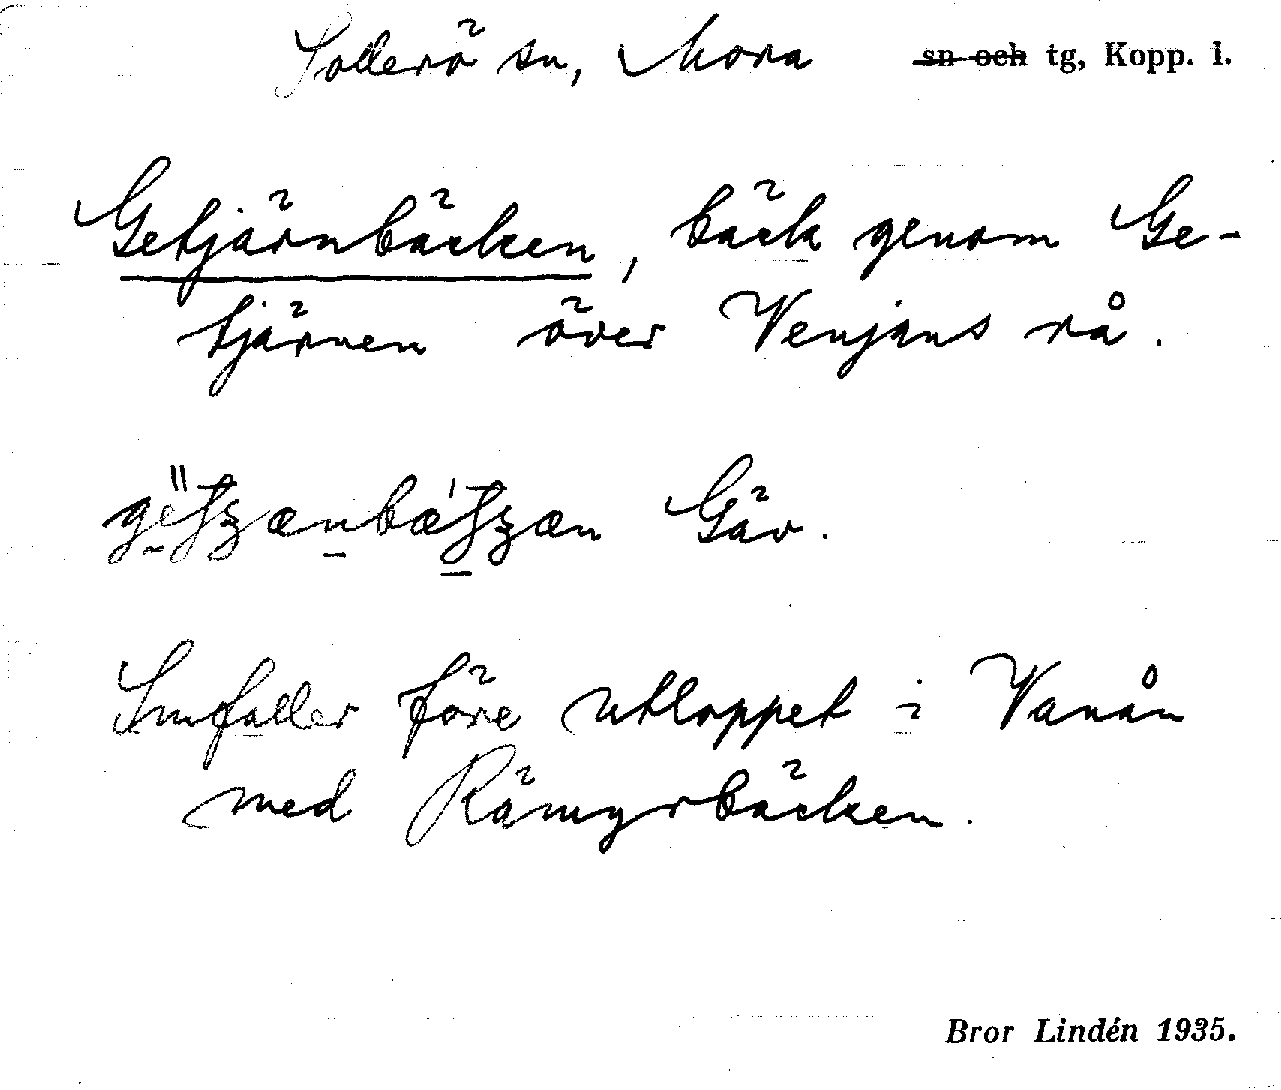 Sollerö sn, Mora sn och tg, Kopp. l.
Getjärnbäcken, bäck genom Ge-
tjärnen över Venjans rå.
Gäv.
Smfaller före utloppet i Vanån
med Rämyrbäcken.
Bror Lindén 1935.